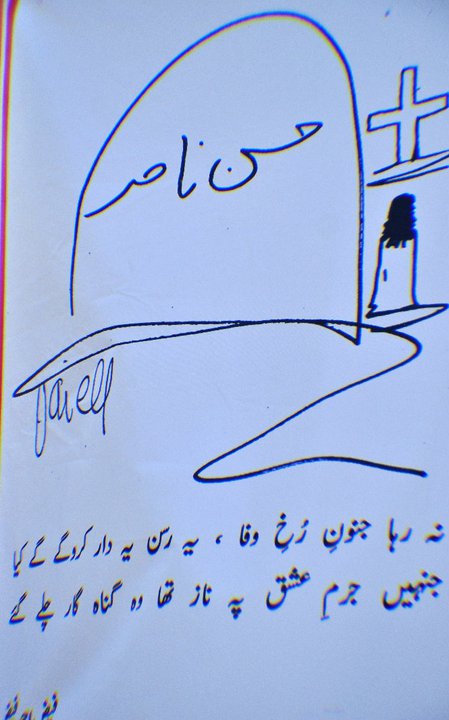 حسن ناصر
نہ رہا جنونِ رُخِ وفا ، یہ رسن یہ دار کروگے گے کیا
جنہیں جرمِ عشق پہ ناز تھا وہ گناہ گار چلے گئے
فیض احمد فیض